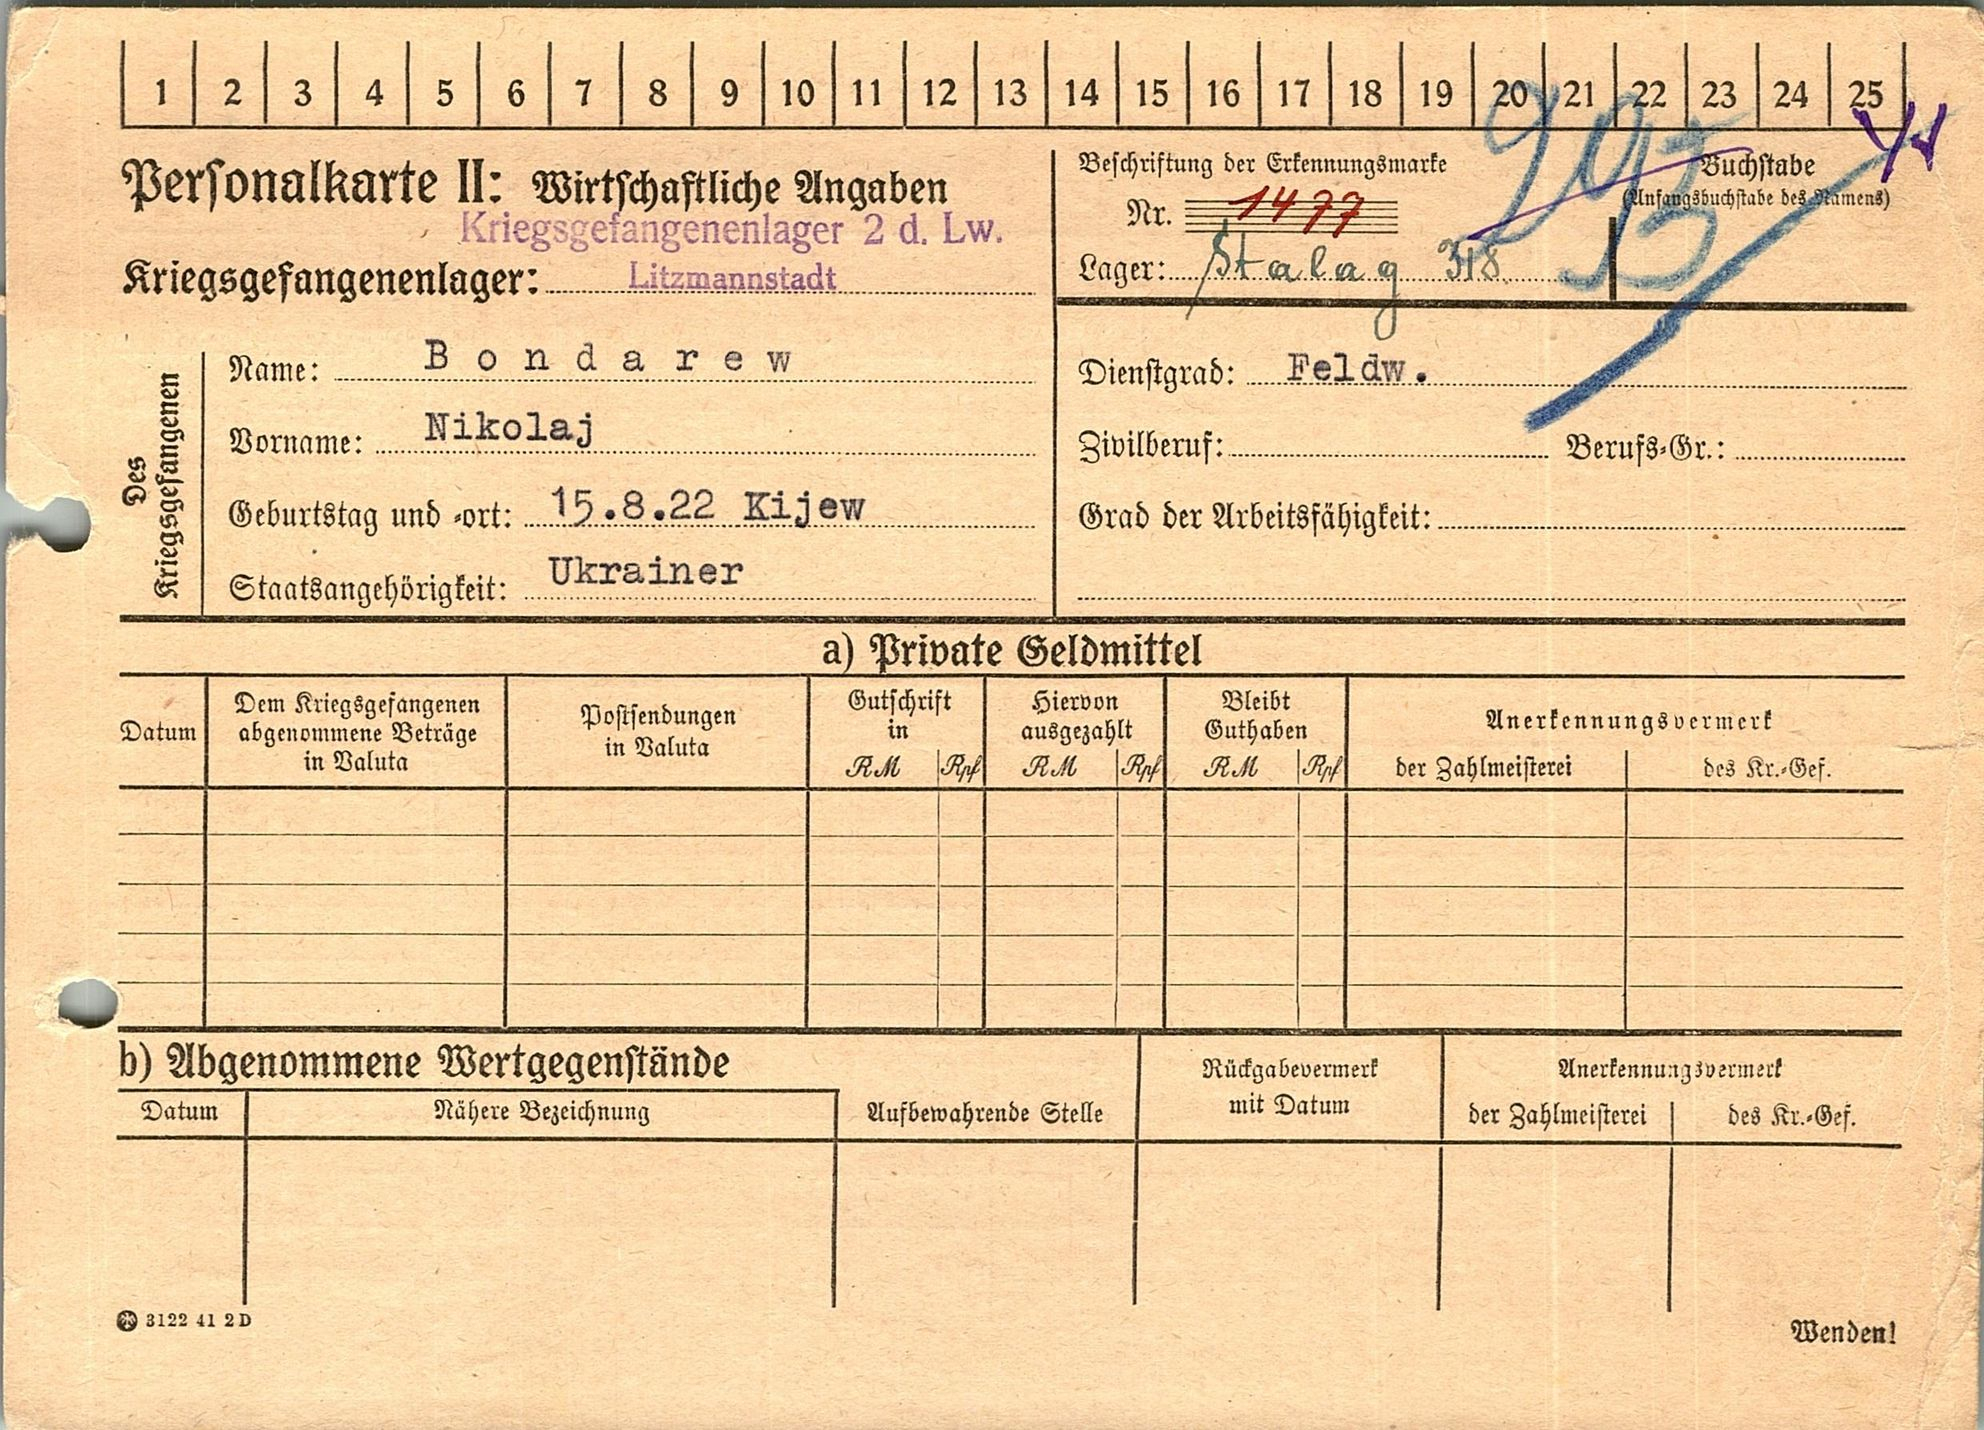 1 2 3 4 5 6 7 8 9 10 11 12 13 14 15 16 17 18 19 20 21 22 23 24 25
Personalkarte II: Wirtschaftliche Angaben
Kriegsgefangenenlager 2 d. Lw.
Kriegsgefangenenlager: Litzmannstadt
Beschriftung der Erkennungsmarke
Nr. 1477
Lager: Stalag 318
Buchstabe
(Anfangsbuchstabe des Namens)
Des
Kriegsgefangenen
Name: Bondarew
Vorname: Nikolaj
Geburtstag und -ort: 15.8.22 Kijew
Staatsangehörigkeit: Ukrainer
Dienstgrad: Feldw.
Zivilberuf: Berufs-Gr.:
Grad der Arbeitsfähigkeit:
a) Private Geldmittel
Datum
Dem Kriegsgefangenen
abgenommene Beträge
in Valuta
Postsendungen
in Valuta
Gutschrift
in
RM Rpf
Hiervon
ausgezahlt
RM Rpf
Bleibt
Guthaben
RM Rpf
Anerkennungsvermerk
der Zahlmeisterei des Kr.-Gef.
b) Abgenommene Wertgegenstände
Datum Nähere Bezeichnung Aufbewahrende Stelle
Rückgabevermerk
mit Datum
Anerkennungsvermerk
der Zahlmeisterei des Kr.-Gef.
3122 41 2D
Wenden!